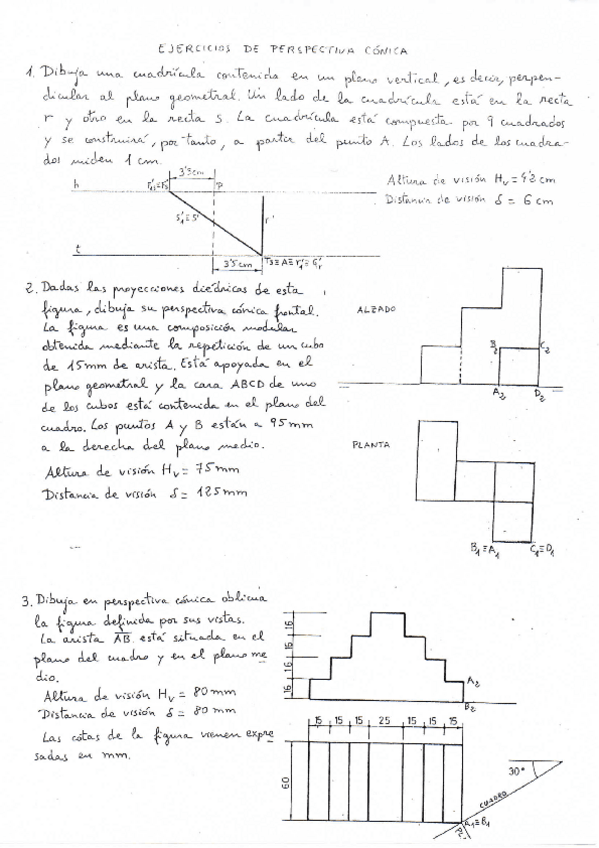 EJERCICIOS DE PERSPECTIVA CÓNICA
1. Dibuja una cuadrícula contenida en un plano vertical, es decir, perpen-
dicular al plano geometral. Un lado de la cuadrícula está en la recta
r y otro en la recta s. La cuadrícula está compuesta por 9 cuadrados
y se construirá, por tanto, a partir del punto A. Los lados de los cuadra-
dos miden 1 cm.
3'5cm
h
P
Altura de visión Hv = 4'2 cm
Distancia de visión δ = 6 cm
r'
t
3'5cm
2. Dadas las proyecciones diédricas de esta
figura, dibuja su perspectiva cónica frontal.
La figura es una composición modular
obtenida mediante la repetición de un cubo
de 15mm de arista. Está apoyada en el
plano geometral y la cara ABCD de uno
de los cubos está contenida en el plano del
cuadro. Los puntos A y B están a 95mm
a la derecha del plano medio.
Altura de visión Hv = 75mm
Distancia de visión δ = 125mm
ALZADO
B2 C2
A2 D2
PLANTA
B1≡A1 C1≡D1
3. Dibuja en perspectiva cónica oblicua
la figura definida por sus vistas.
La arista AB está situada en el
plano del cuadro y en el plano me
dio.
Altura de visión Hv = 80mm
Distancia de visión δ = 80mm
Las cotas de la figura vienen expre
sadas en mm.
16
16
16
16
A2
B2
15 15 15 25 15 15 15
60
30°
CUADRO
A1≡B1